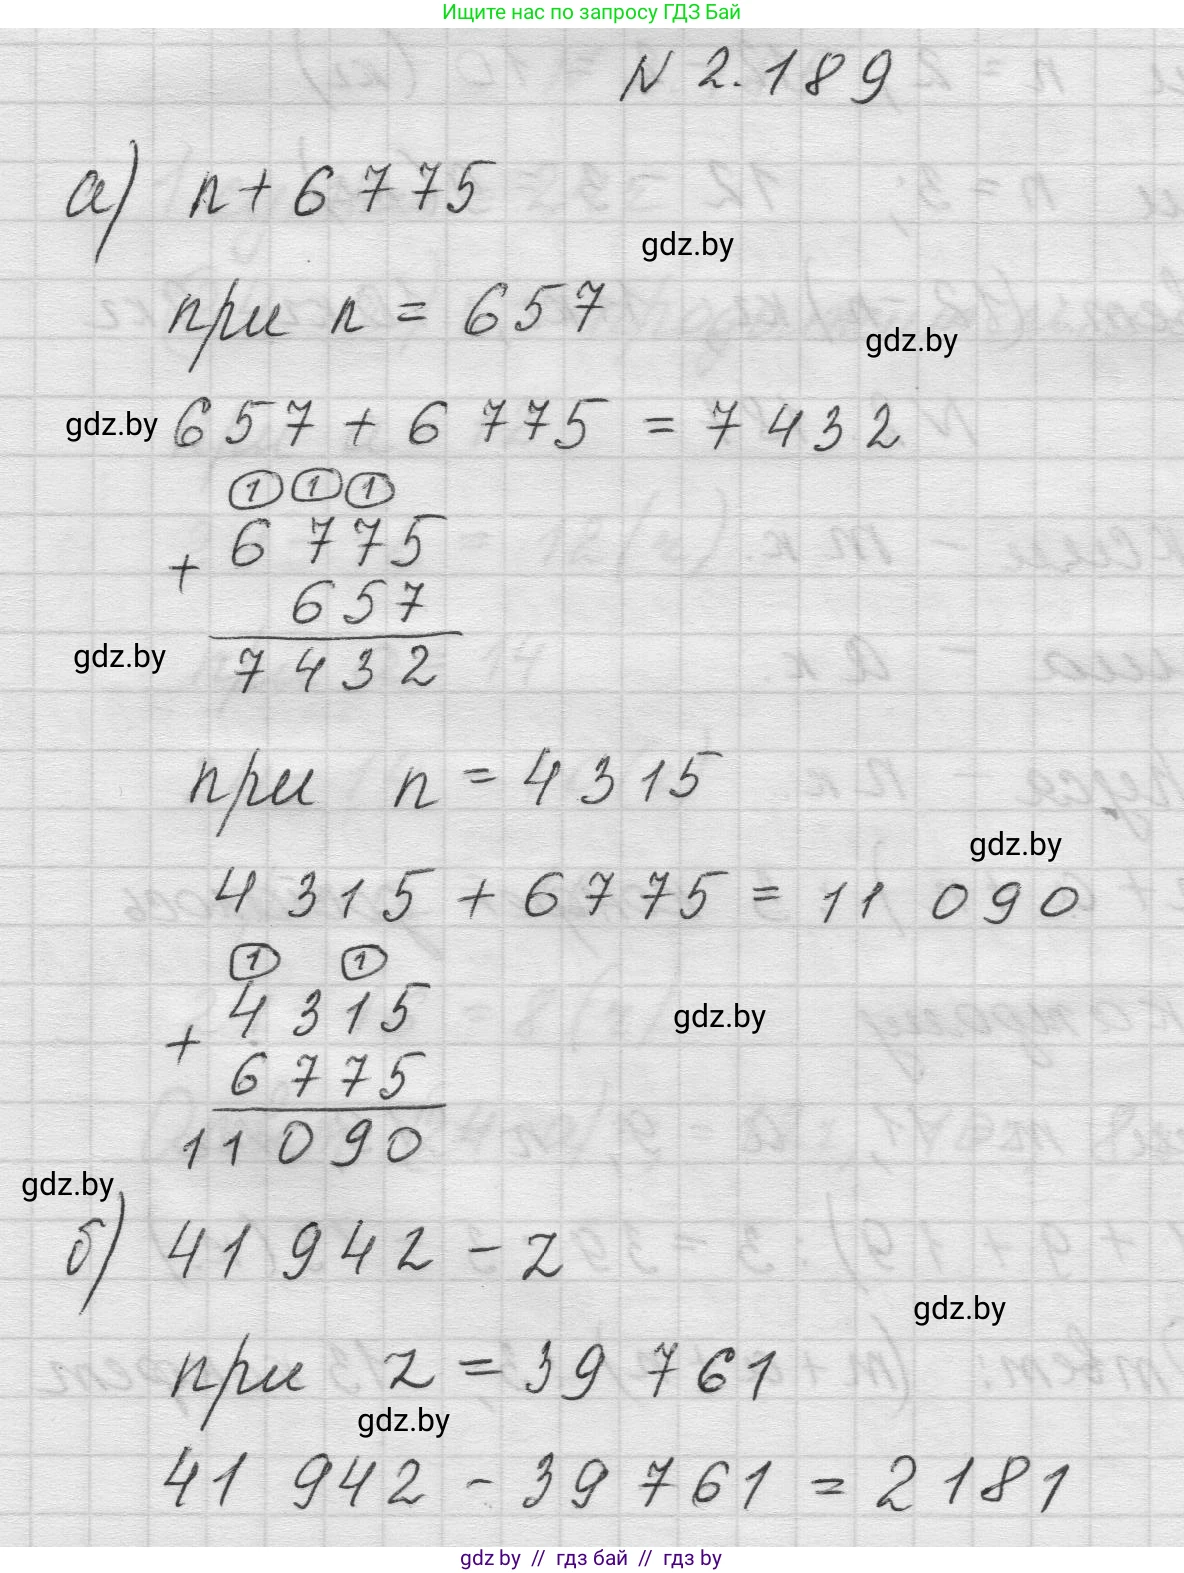 Ищите нас по запросу ГДЗ Бай
N 2.189
а) n + 6775
gdz.by
при n = 657
gdz.by
gdz.by
657 + 6775 = 7432
1 1 1
6775
+
657
gdz.by
7432
при n = 4315
gdz.by
4315 + 6775 = 11 090
1 1
4315
gdz.by
+
6775
11090
gdz.by
б) 41 942 - z
gdz.by
при z = 39 761
gdz.by
41 942 - 39 761 = 2181
gdz by // гдз бай // гдз by